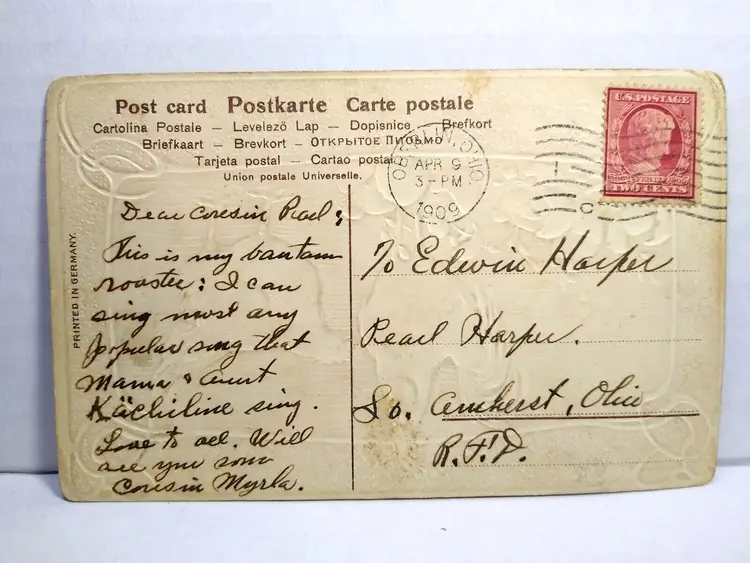 Post card Postkarte Carte postale
Cartolina Postale — Levelezö Lap — Dopisnice — Brefkort
Briefkaart — Brevkort — ОТКРЫТОЕ ПИСЬМО
Tarjeta postal — Cartao postal
Union postale Universelle.
PRINTED IN GERMANY.
OBERLIN, OHIO.
APR 9
3-PM
1909
U.S. POSTAGE
TWO CENTS
Dear Cousin Pearl;
This is my bantam
rooster: I can
sing most any
popular song that
Mama & Aunt
sing.
Love to all. Will
see you soon
Cousin Myrla.
To Edwin Harper
Pearl Harper.
So. Amherst, Ohio
R.F.D.